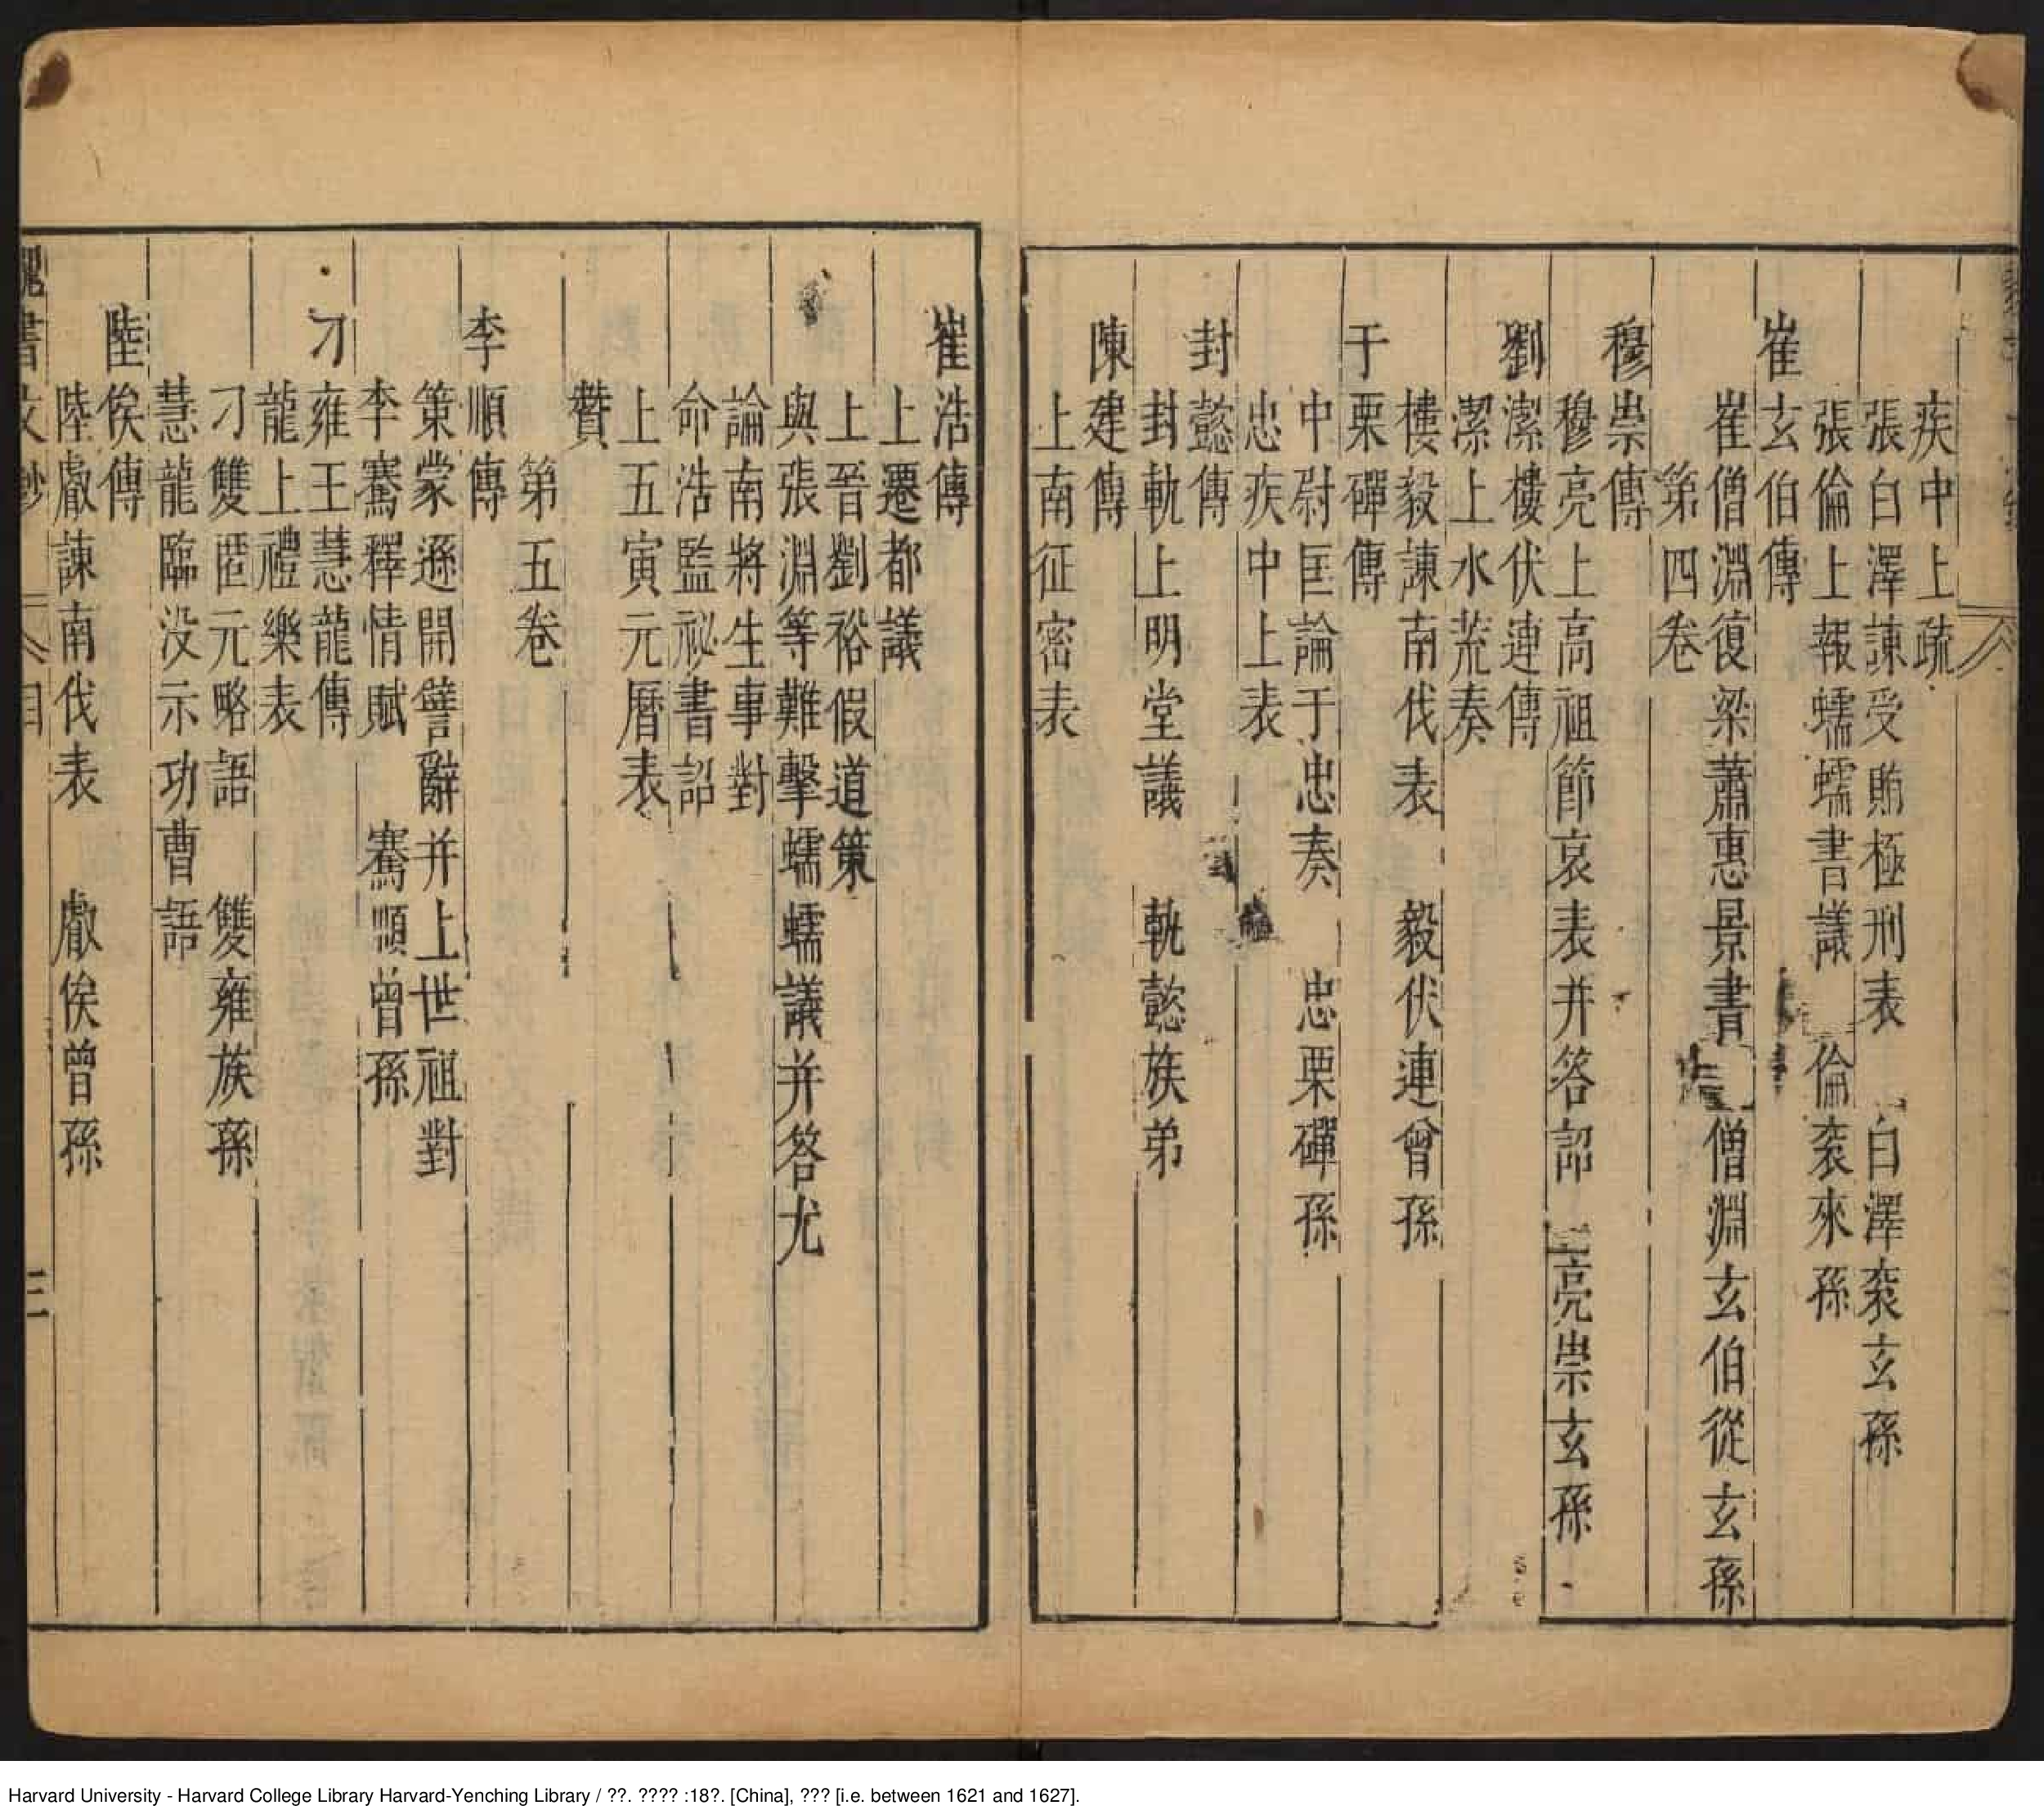 疾中上疏
張白澤諫受賄極刑表　白澤袞玄孫
張倫上報蠕蠕書議　倫袞來孫
崔玄伯傳
崔僧淵復梁蕭惠景書　僧淵玄伯從玄孫
第四卷
穆崇傳
穆亮上高祖節哀表并答詔　亮崇玄孫
劉潔樓伏連傳
潔上水荒奏
樓毅諫南伐表　毅伏連曾孫
于栗磾傳
中尉匡論于忠奏　忠栗磾孫
忠疾中上表
封懿傳
封軌上明堂議　軌懿族弟
陳建傳
上南征密表
崔浩傳
上遷都議
上晉劉裕假道策
與張淵等難擊蠕蠕議并答尤
論南將生事對
命浩監祕書詔
上五寅元曆表
贊
第五卷
李順傳
策蒙遜開譬辭并上世祖對
李騫釋情賦　騫順曾孫
刁雍王慧龍傳
龍上禮樂表
刁雙匿元略語　雙雍族孫
慧龍臨没示功曹語
陸俟傳
陸叡諫南伐表　叡俟曾孫
魏書文鈔　目　三
Harvard University - Harvard College Library Harvard-Yenching Library / ??. ???? :18?. [China], ??? [i.e. between 1621 and 1627].